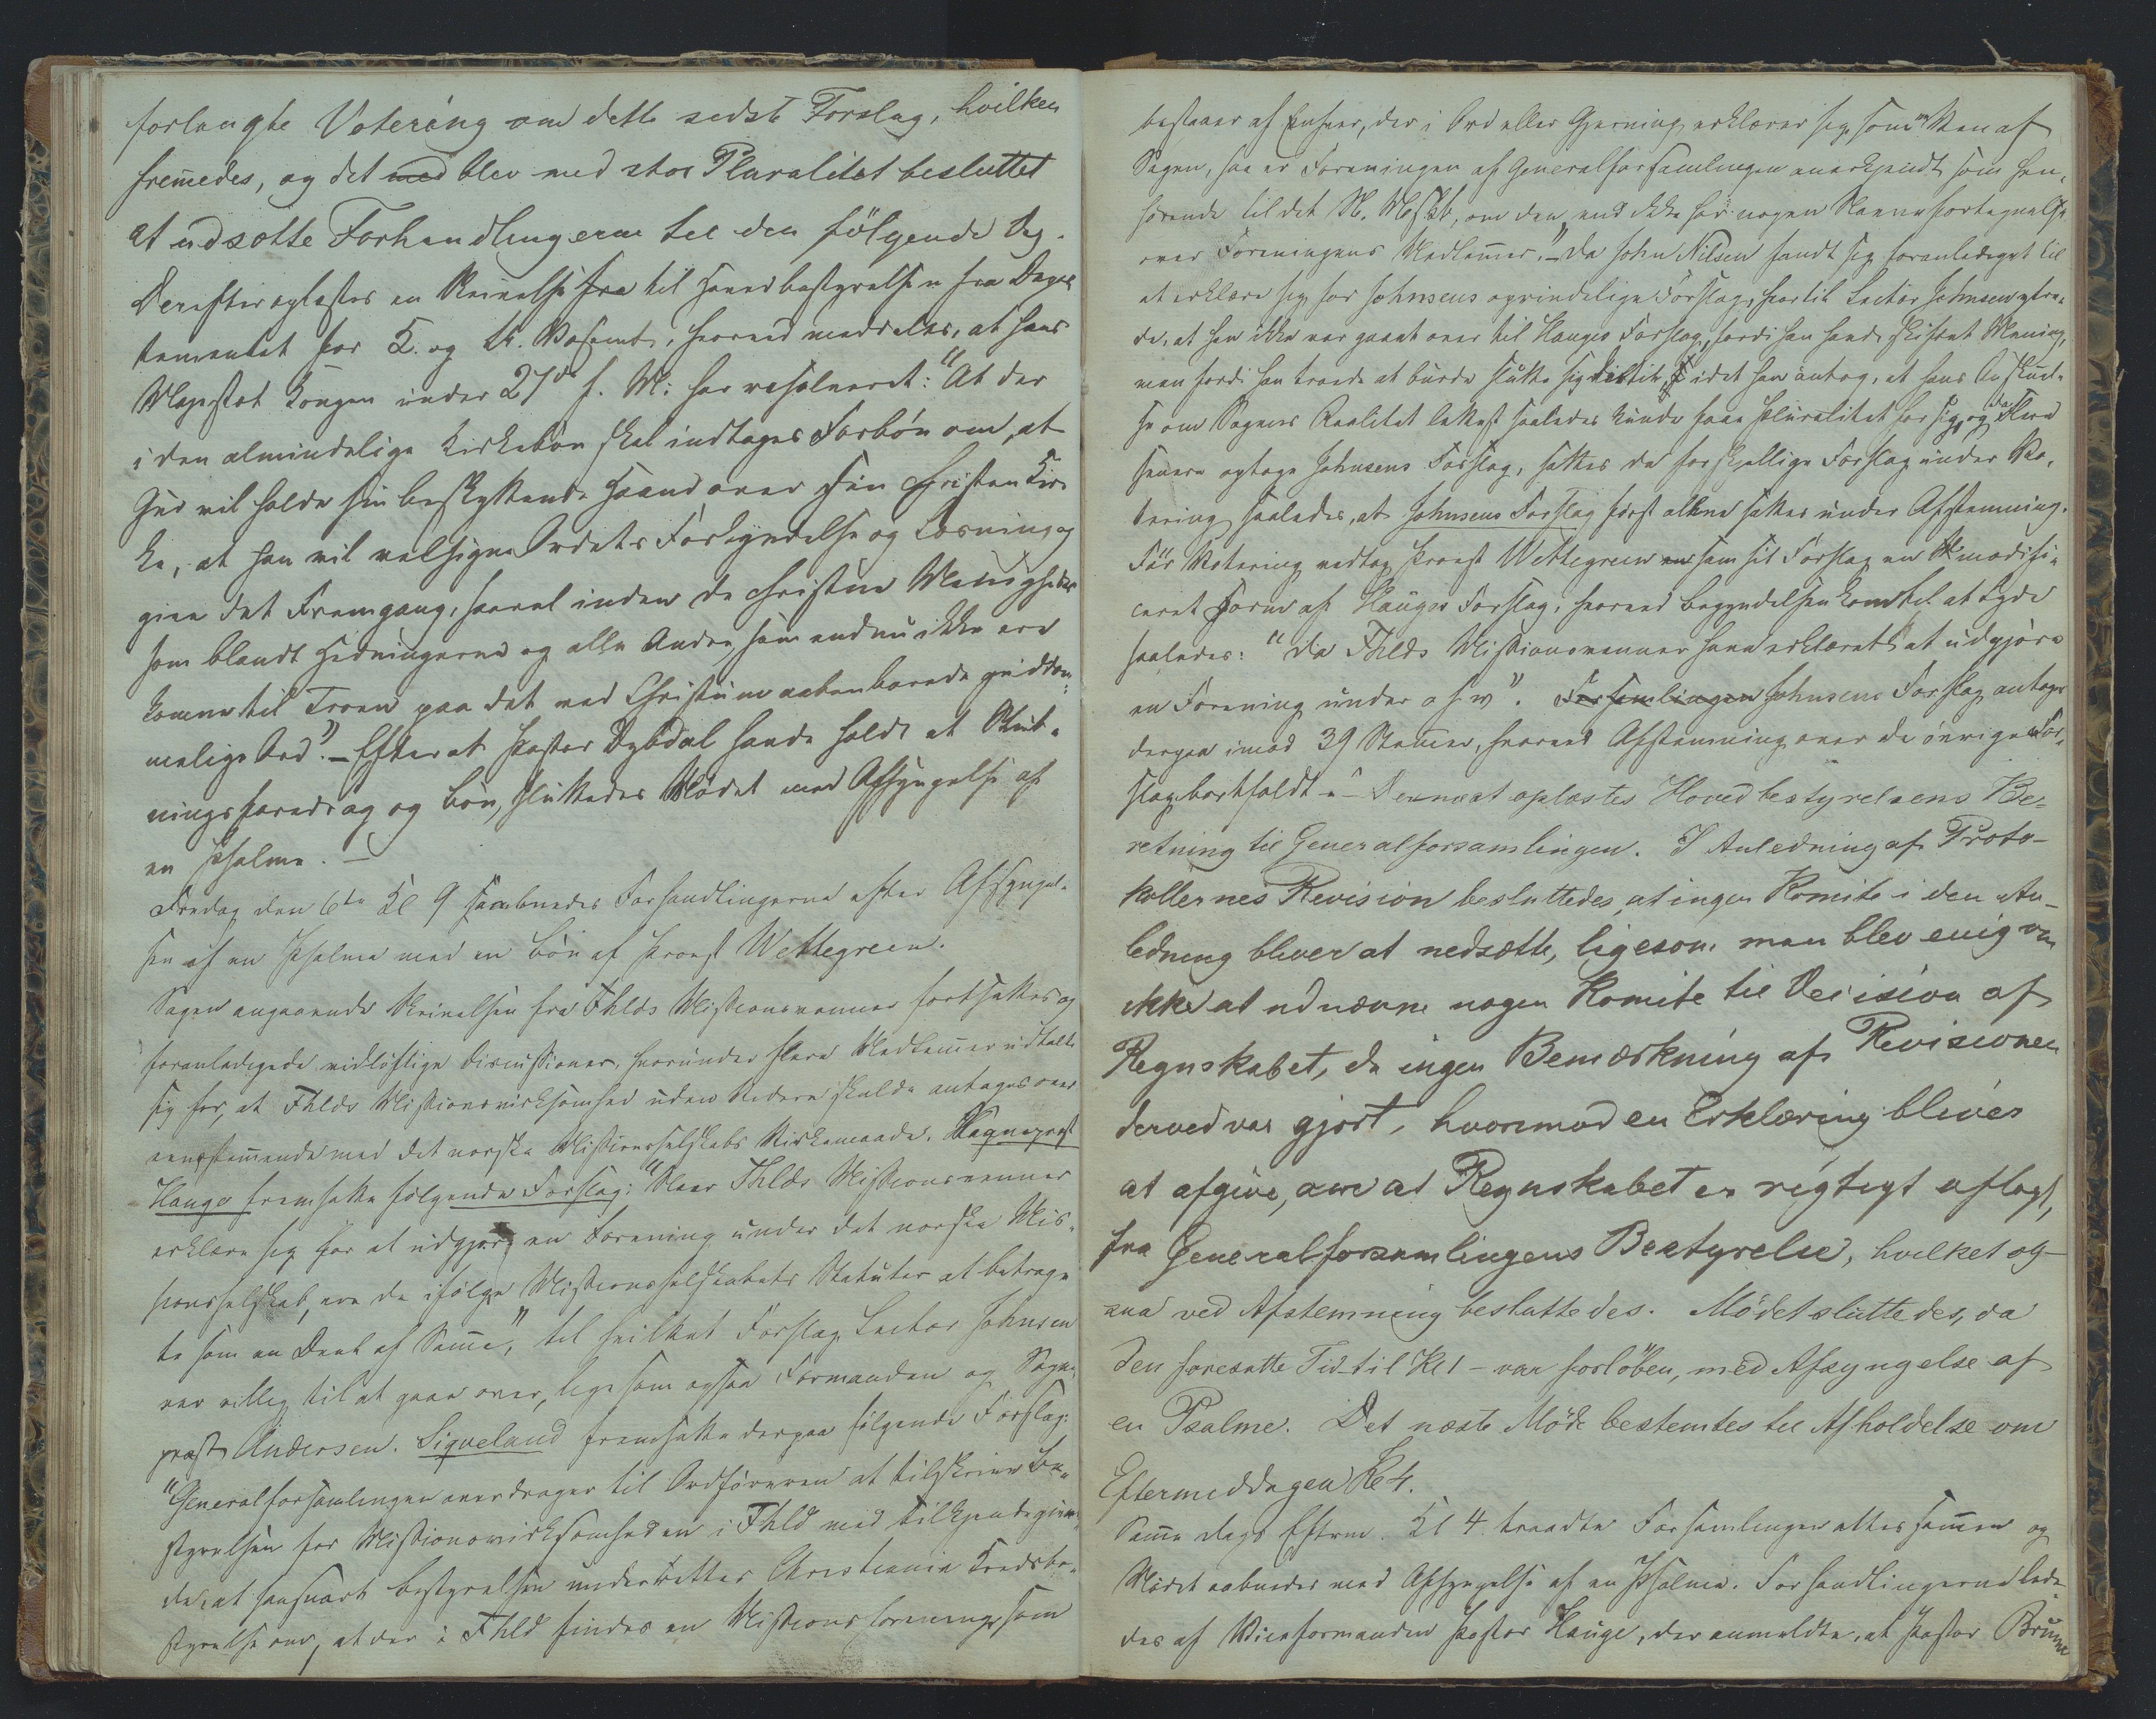 forlangte Votering om dette sidste Forslag, hvilken
fremmedes, og det med blev med stor Pluralitet besluttet
at udsætte Forhandlingerne til den følgende Dag.
Derefter oplæstes en Skrivelse fra til Hovedbestyrelsen fra Depar
tementet for K. og U. Væsenet, hvorved meddeeltes, at Hans
Majestæt Kongen under 27de f. M. har resolveret: "At der
i den almindelige Kirkebøn skal indtages Forbøn om, at
Gud vil holde sin beskyttende Haand over sin christen Kir-
ke, at han vil velsigne Ordets Forkyndelse og Læsning og
give det Fremgang, saavel inden de christne Menigheder
som blandt Hedningerne og alle Andre, som endnu ikke ere
komne til Troen paa det ved Christum aabenbarede guddom-
melige Ord". – Efterat Pastor Dybdal havde holdt et Slut-
ningsforedrag og Bøn, sluttedes Mødet med Afsyngelse af
en Psalme. –
Fredag den 6te Kl 9 fra aabnedes Forhandlingerne efter Afsyngel-
sen af en Psalme med en Bøn af Provst Wettegreen.
Sagen angaaende Skrivelsen fra Thlds Missionsvenner fortsattes og
foranledigede vidløftige Discussioner, hvorunder flere Medlemmer udtalte
sig for, at Thlds Missionsvirksomhed uden Videre skulde antages over
eensstemmende med det norske Missionsselskabs Virkemaade. Sogneprest
Hauge fremsatte følgende Forslag: "Naar Thlds Missionsvenner
erklære sig for at udgjøre en Forening under det norske Mis-
sionsselskab, ere de ifølge Missionsselskabets Statuter at betrag-
te som en Deel af Samme", til hvilket Forslag Lector Johnsen
var villig til at gaae over, ligesom ogsaa Formanden og Sogne-
præst Andersen. Siqveland fremsatte derpaa følgende Forslag:
"Generalforsamlingen overdrager til Ordføreren at tilskrive Be-
styrelsen for Missionsvirksomheden i Thld med Tilkjendegiven-
de, at saasnart Bestyrelsen underretter Christiania Kredsbe-
styrelse om, at der i Thld findes en Missionsforening, som
bestaaer af Enhver, der i Ord eller Gjerning erklærer sig som en Ven af
Sagen, saa er Foreningen af Generalforsamlingen anerkjendt som hen-
hørende til det N. Mskb, om den end ikke har nogen Navnefortegnelse
over Foreningens Medlemmer." – Da John Nilsen fandt sig foranlediget til
at erklære sig for Johnsens oprindelige Forslag, hvortil Lector Johnsen ytre-
de, at han ikke var gaaet over til Hauges Forslag, fordi han havde skiftet Mening,
men fordi han troede at burde slutte sig dertil, idet han antog, at hans Anskuel-
se om Sagens Realitet lettest saaledes kunde faae Pluralitet for sig, og da Flere
senere optoge Johnsens Forslag, sattes de forskjellige Forslag under Vo-
tering saaledes, at Johnsens Forslag først allene sattes under Afstemning.
Før Votering vedtog Provst Wettegreen som sit Forslag en modifi-
ceret Form af Hauges Forslag, hvorved Begyndelsen kom til at lyde
saaledes: "Da Thlds Missionsvenner have erklæret at udgjøre
en Forening under o s v". Forsamlingen Johnsens Forslag antoges
derpaa imod 39 Stemmer, hvorved Afstemning over de øvrige For-
slag bortfaldt. – Dernæst oplæstes Hovedbestyrelsens Be-
retning til Generalforsamlingen. I Anledning af Proto-
kollernes Revision besluttedes, at ingen Komite i den An-
ledning bliver at nedsætte, ligesom man blev enig om
ikke at udnævne nogen Komite til Decision af
Regnskabet, da ingen Bemærkning af Revisionen
derved var gjort, hvorimod en Erklæring bliver
at afgive, om at Regnskabet er rigtigt aflagt,
fra Generalforsamlingens Bestyrelse, hvilket og-
saa ved Afstemning besluttedes. Mødet sluttedes, da
den foresatte Tid – til Kl 1 – var forløben, med Afsyngelse af
en Psalme. Det næste Møde bestemtes til Afholdelse om
Eftermiddagen Kl 4.
Samme Dags Efterm. Kl 4 traadte Forsamlingen atter sammen og
Mødet aabnedes med Afsyngelse af en Psalme. Forhandlingerne lede-
des af Viceformanden Pastor Hauge, der anmeldte, at Pastor Bruun